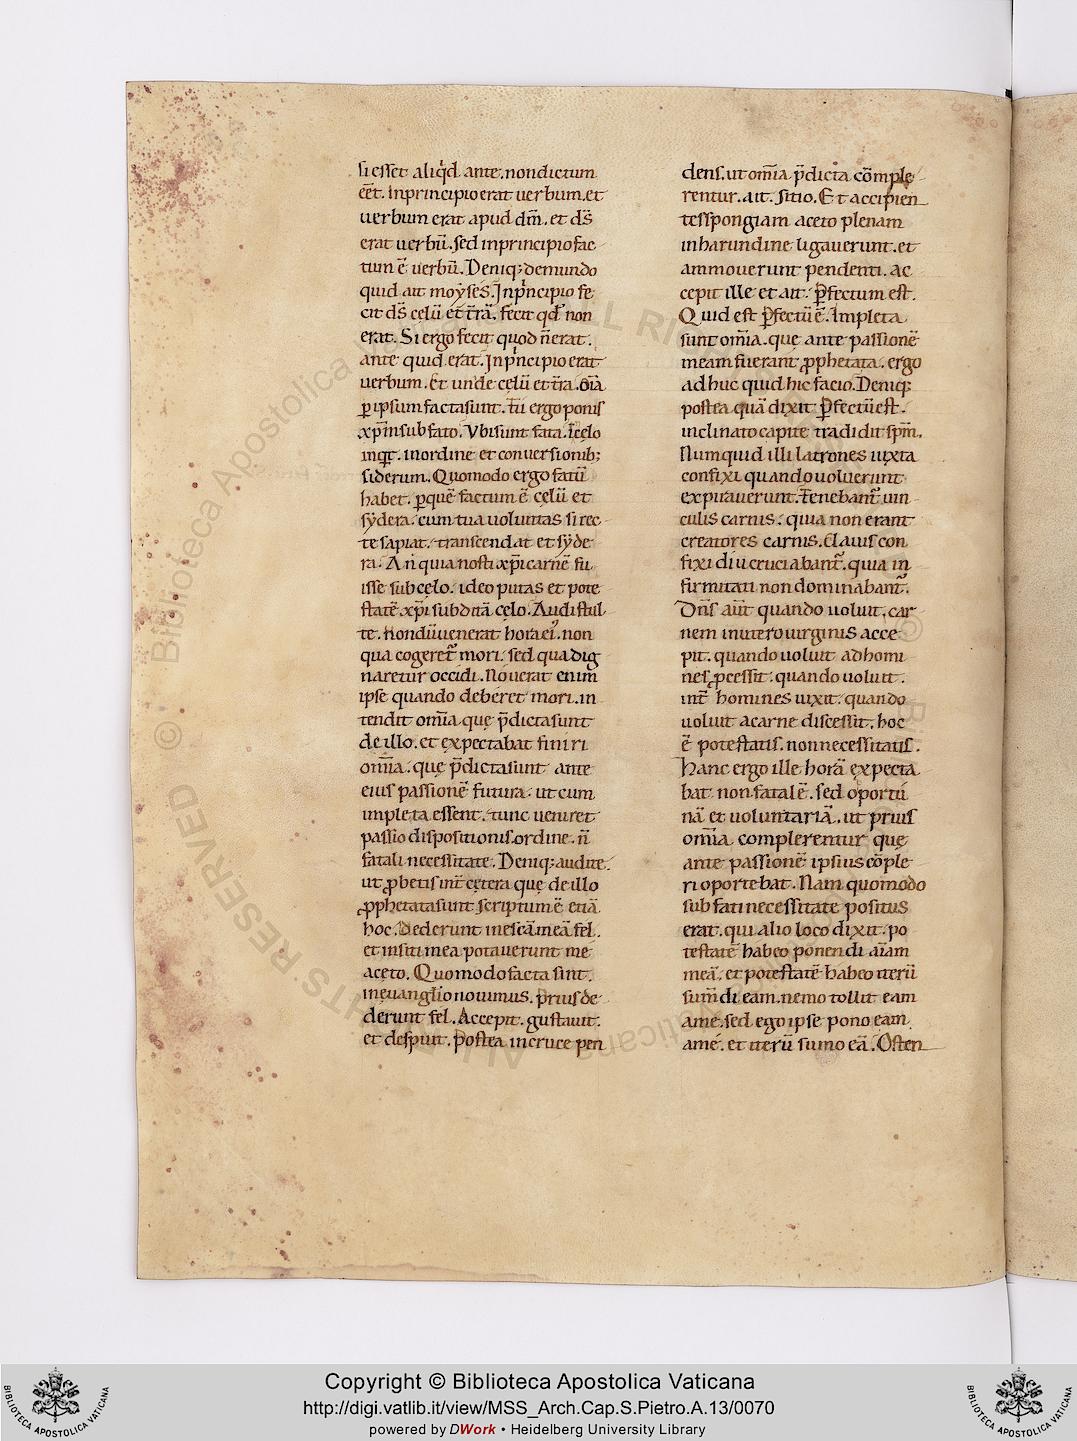 si esset aliq̇d ante. non dictum
eēt. Inprincipio erat uerbum. et
uerbum erat apud dm̄. et ds̄
erat uerbū. sed inprincipio fac
tum ē uerbū. Deniq; de mundo
quid ait moẏses. Inpͥncipio fe
cit ds̄ celū et t̄rā. fecit qd̄ non
erat. Si ergo fecit quod n̄ erat.
ante quid erat. Inpͥncipio erat
uerbum. Et unde celū et t̄ra. oīa
ꝑ ipsum facta sunt. tū ergo ponis
xp̄m sub fato. Vbi sunt fata. In celo
inqt. in ordine et conuersionib;
siderum. Quomodo ergo fatū
habet. ꝑ quē factum ē celū et
sẏdera. cum tua uoluntas si rec
te sapiat. transcendat et sẏde
ra. An quia nosti xp̄i carnē fu
isse sub celo. ideo putas et pote
statē xp̄i subditā celo. Audi stul
te. Nondū uenerat hora ei᾽. non
qua cogeret᷑ mori. sed qua dig
naretur occidi. Nouerat enim
ipse quando deberet mori. in
tendit om̄ia quę p̄dicta sunt
de illo. et expectabat finiri
om̄ia. quę p̄dicta sunt ante
eius passionē futura. ut cum
impleta essent. tunc ueniret
passio dispositionis ordine. n̄
fatali necessitate. Deniq; audite.
ut ꝓbetis int̄ cętera quę de illo
ꝓphetata sunt scriptum ē etiā
hoc. Dederunt in escā meā fel.
et in siti mea potauerunt me
aceto. Quomodo facta sint.
in euanglio nouimus. prius de
derunt fel. Accepit. gustauit.
et despuit. Postea in cruce pen
dens. ut om̄ia p̄dicta cōmple
rentur. ait. sitio. Et accipien
tes spongiam aceto plenam
in harundine ligauerunt. et
ammouerunt pendenti. ac
cepit ille et ait. ꝑfectum est.
Quid est ꝑfectū ē. Impleta
sunt om̄ia. quę ante passionē
meam fuerant ꝓphetata. ergo
adhuc quid hic facio. Deniq;
postea quā dixit ꝑfectū est.
inclinato capite tradidit spm̄.
Numquid illi latrones iuxta
confixi quando uoluerunt
expirauerunt. Tenebant᷑ uin
culis carnis. quia non erant
creatores carnis. Clauis con
fixi diu cruciabant᷑. quia in
firmitati non dominabant᷑.
Dn̄s aūt quando uoluit. car
nem in utero uirginis acce
pit. quando uoluit ad homi
nes ꝓcessit. quando uoluit.
int̄ homines uixit. quando
uoluit a carne discessit. hoc
ē potestatis. non necessitatis.
Hanc ergo ille horā expecta
bat non fatalē. sed oportu
nā et uoluntariā. ut prius
om̄ia complerentur quę
ante passionē ipsius cōple
ri oportebat. Nam quomodo
sub fati necessitate positus
erat. qui alio loco dixit. po
testatē habeo ponendi aīam
meā. et potestatē habeo iterū
sum̄di eam. nemo tollit eam
a me. sed ego ipse pono eam
a me. et iterū sumo eā. Osten
ALL RIGHTS RESERVED © Biblioteca Apostolica Vaticana
BIBLIOTECA APOSTOLICA VATICANA
Copyright © Biblioteca Apostolica Vaticana
http://digi.vatlib.it/view/MSS_Arch.Cap.S.Pietro.A.13/0070
powered by DWork • Heidelberg University Library
BIBLIOTECA APOSTOLICA VATICANA